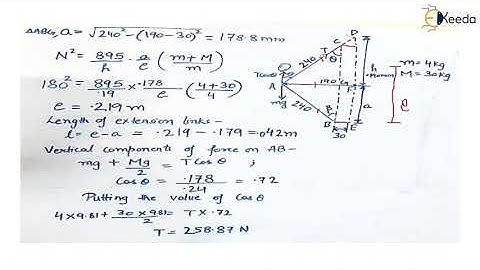 ΔABG, a = √240² - (190-30)² = 178.8 mm
N² = 895/h · a/e (m+M/m)
180² = 895/.19 × .178/e (4+30/4)
e = .219 m
Length of extension links -
l = e-a = .219 - .179 = .042 m
Vertical components of force on AB -
mg + Mg/2 = T Cos θ ;
Cos θ = .178/.24 = .72
Putting the value of Cos θ
4 x 9.81 + 30 x 9.81/2 = T x .72
T = 258.87 N
Keeda
m = 4 kg
M = 30 kg
D
C
T
θ
240
h
TCosθ
A
190
G
F
mg
e
a
240
B
E
30